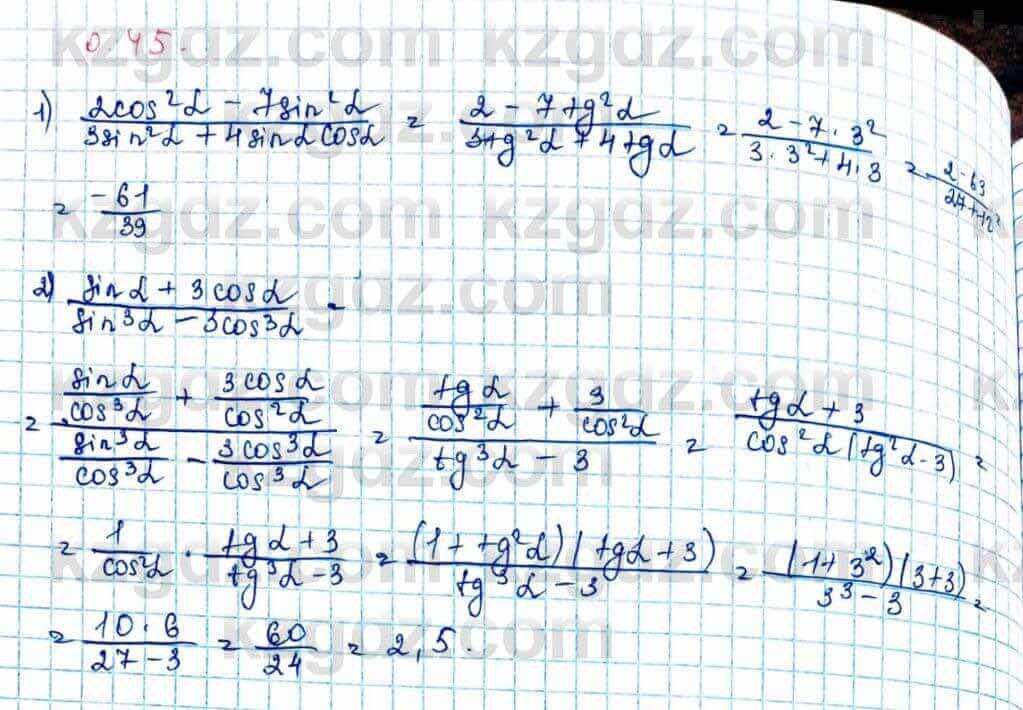 0.45.
1) (2cos²α − 7sin²α)/(3sin²α + 4sinα cosα) = (2 − 7tg²α)/(3tg²α + 4tgα) = (2 − 7·3²)/(3·3² + 4·3) = (2−63)/(27+12) =
= −61/39
2) (sinα + 3cosα)/(sin³α − 3cos³α) =
= (sinα/cos³α + 3cosα/cos²α)/(sin³α/cos³α − 3cos³α/cos³α) = (tgα/cos²α + 3/cos²α)/(tg³α − 3) = (tgα + 3)/(cos²α(tg²α − 3)) =
= 1/cos²α · (tgα + 3)/(tg³α − 3) = (1 + tg²α)(tgα + 3)/(tg³α − 3) = (1 + 3²)(3 + 3)/(3³ − 3) =
= (10·6)/(27 − 3) = 60/24 = 2,5.
kzgdz.com